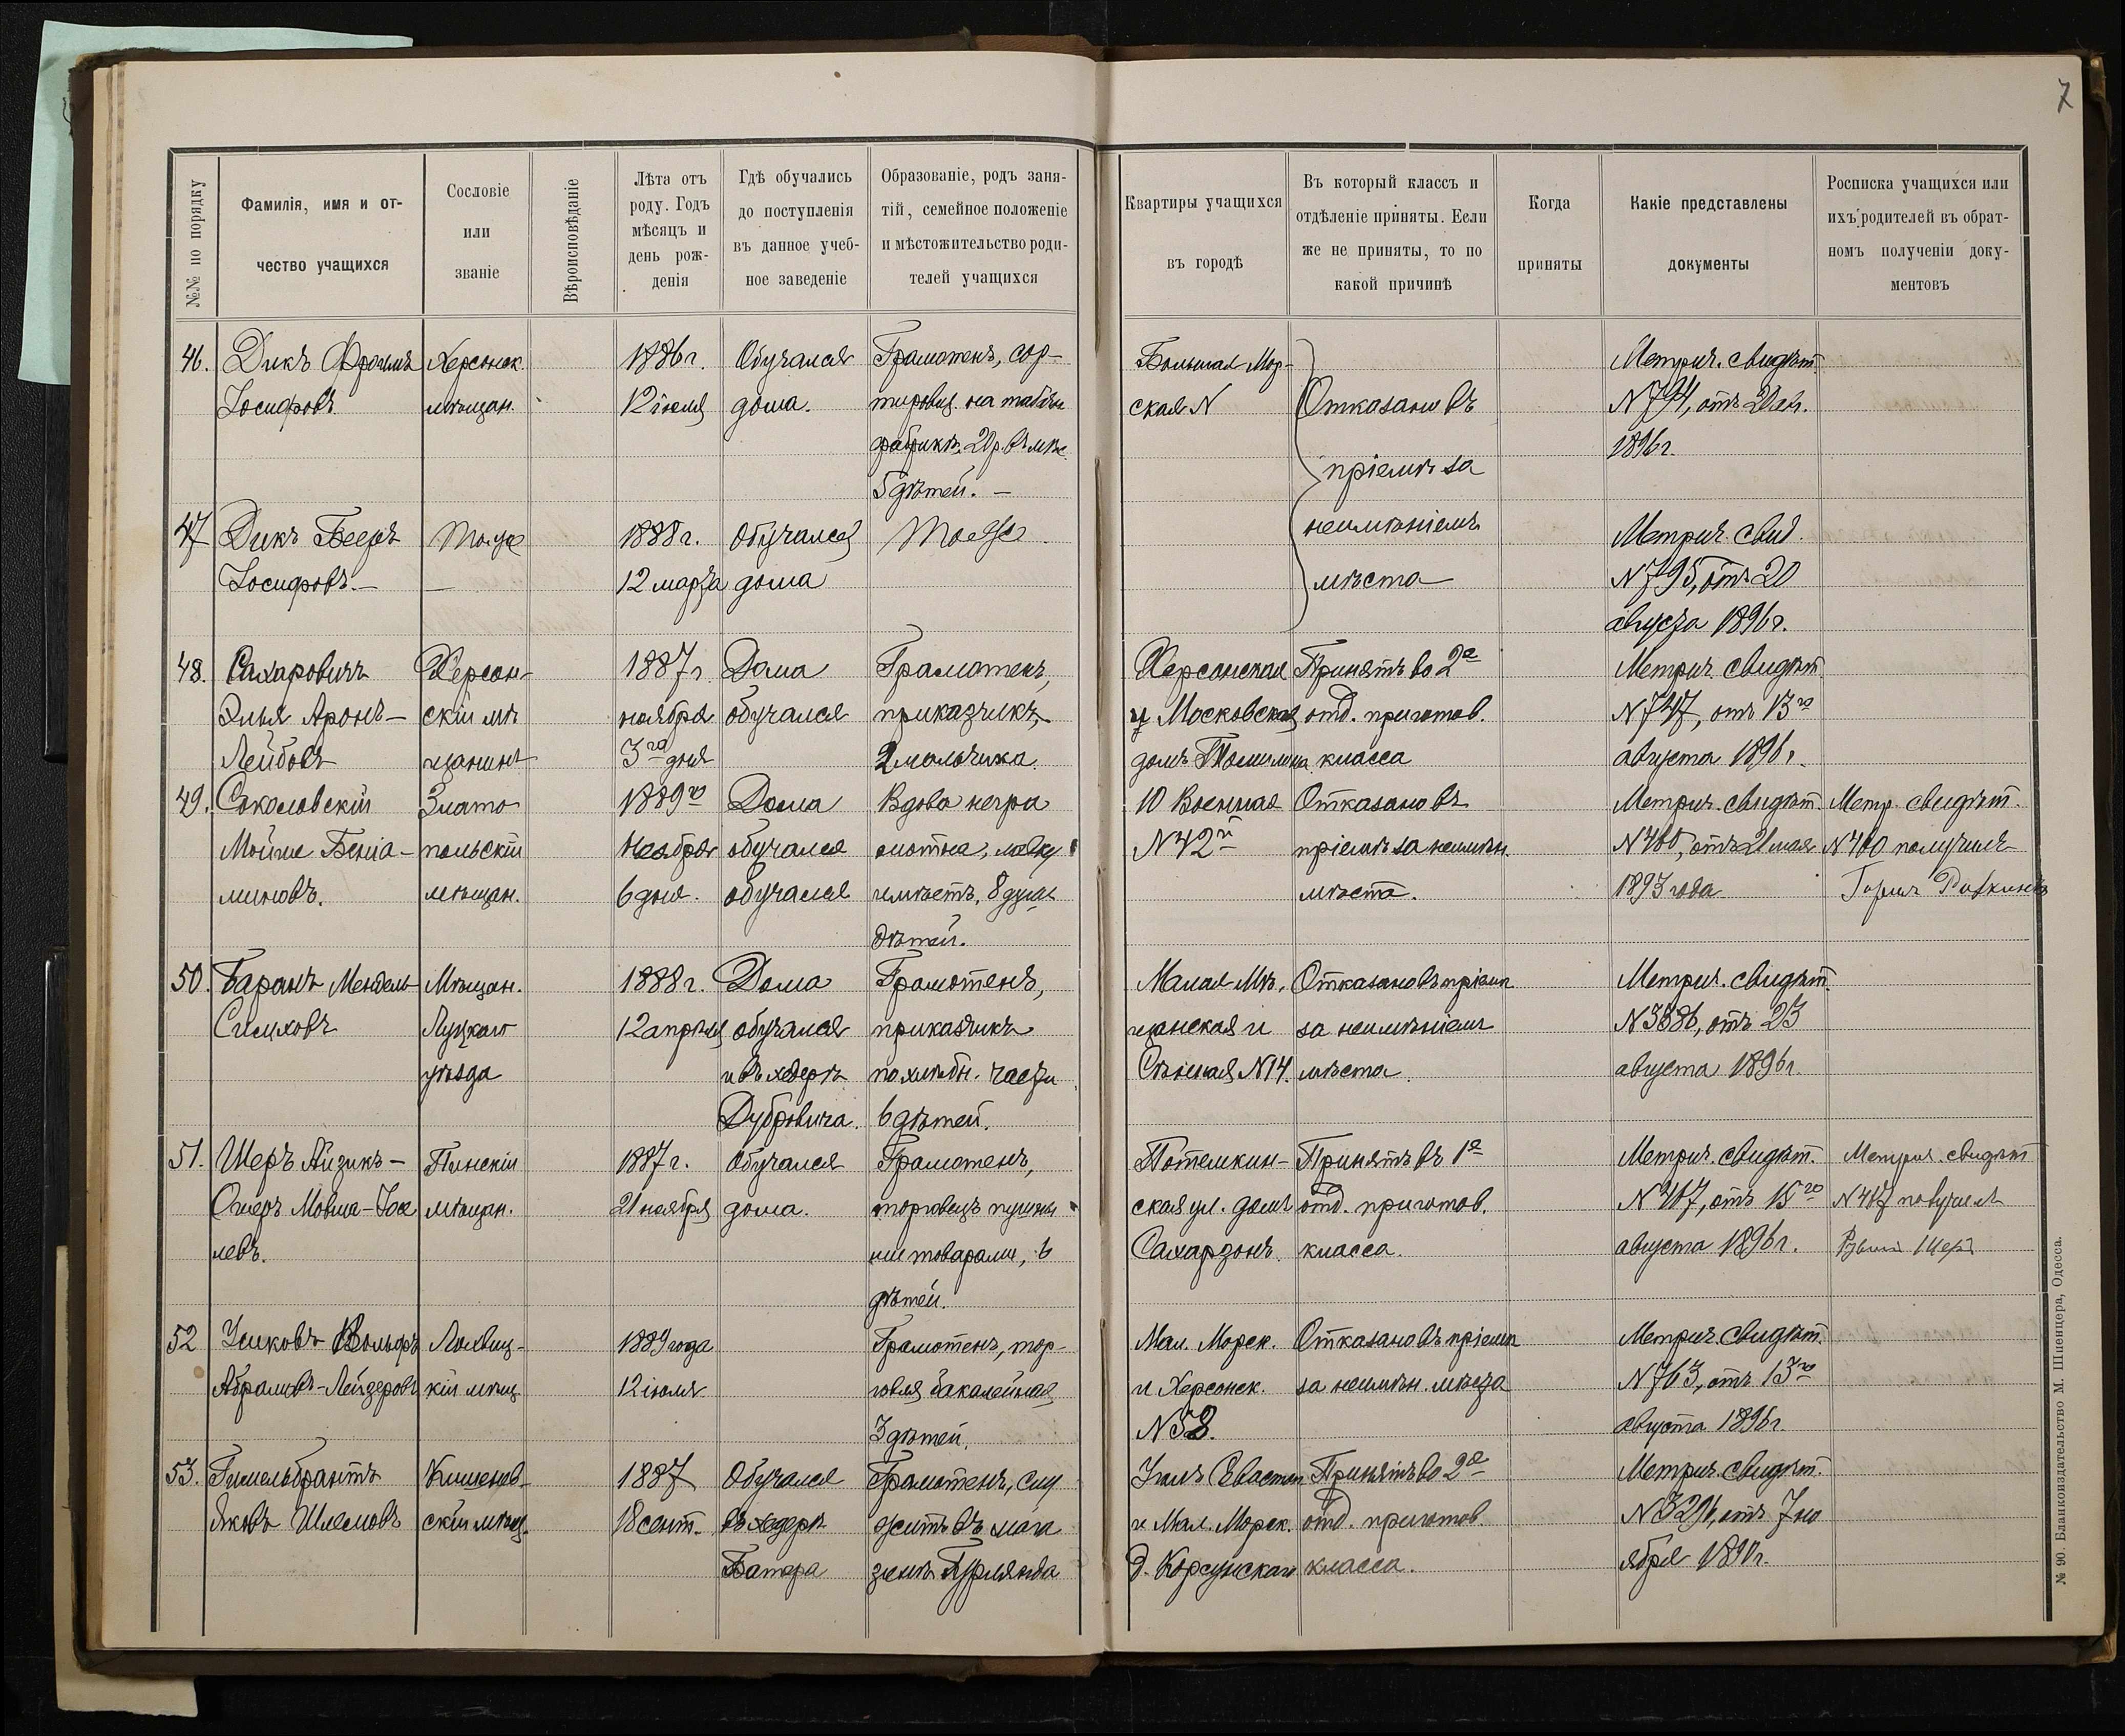 7
№№ по порядку
Фамилія, имя и от-
чество учащихся
Сословіе
или
званіе
Вѣроисповѣданіе
Лѣта отъ
роду. Годъ
мѣсяцъ и
день рож-
денія
Гдѣ обучались
до поступленія
въ данное учеб-
ное заведеніе
Образованіе, родъ заня-
тій, семейное положеніе
и мѣстожительство роди-
телей учащихся
Квартиры учащихся
въ городѣ
Въ который классъ и
отдѣленіе приняты. Если
же не приняты, то по
какой причинѣ
Когда
приняты
Какіе представлены
документы
Росписка учащихся или
ихъ родителей въ обрат-
номъ полученіи доку-
ментовъ
46.
Дикъ Фроимъ
Іосифовъ
Херсонск.
мѣщан.
1886 г.
12 іюля
Обучался
дома.
Грамотенъ, сор-
тировщ. на табач.
фабрикѣ, 20 р. въ мѣс.
5 дѣтей. —
Большая Мор-
ская N
Отказано въ
пріемѣ за
неимѣніемъ
мѣста
Метрич. свидѣт.
N 794, отъ 20 ав.
1896 г.
47
Дикъ Бееръ
Іосифовъ. —
Тоже
—
1888 г.
12 марта
Обучался
дома
Тоже
Метрич. свид.
N 795, отъ 20
августа 1896 г.
48.
Сахаровичъ
Элья Аронъ-
Лейбовъ
Херсон-
скій мѣ
щанинъ
1887 г.
ноября
3го дня
Дома
обучался
Грамотенъ,
приказчикъ,
2 мальчика.
Херсонская
у Московской
домъ Томилина
Принятъ во 2е
отд. приготов.
класса
Метрич. свидѣт.
N 747, отъ 13го
августа 1896 г.
49.
Соколовскій
Мойше Беніа-
миновъ.
Злато
польскій
мѣщан.
1889го
Ноября
6 дня.
Дома
обучался
обучался
Вдова негра
мотная, лавку
имѣетъ, 8 душъ
дѣтей.
10 Военная
N 42й
Отказано въ
пріемѣ за неимѣн.
мѣста.
Метрич. свидѣт.
N 400, отъ 21 мая
1893 года
Метр. свидѣт.
N 400 получилъ
50.
Баранъ Мендель
Сисиховъ
Мѣщан.
Луцкаго
уѣзда
1888 г.
12 апрѣля
Дома
обучался
и въ хедерѣ
Дубровича.
Грамотенъ,
приказчикъ
по хлѣбн. части
6 дѣтей.
Малая Мѣ-
щанская и
Сѣнная N 14.
Отказано въ пріемѣ
за неимѣніемъ
мѣста.
Метрич. свидѣт.
N 3586, отъ 23
августа 1896 г.
51.
Шеръ Айзикъ-
Ошеръ Мовша-Іое
левъ.
Пинскій
мѣщан.
1887 г.
21 ноября
Обучался
дома.
Грамотенъ,
торговецъ пушны
ми товарами, 6
дѣтей.
Потемкин-
ская ул. домъ
Сахардонъ.
Принятъ въ 1е
отд. приготов.
класса.
Метрич. свидѣт.
N 407, отъ 15го
августа 1896 г.
Метрич. свидѣт
N 407 получилъ
Шеръ
52
Усиковъ Вольфъ
Абрамовъ-Лейзеровъ
кій мѣщ.
1889 года
12 іюля
Грамотенъ, тор-
говля бакалейная
3 дѣтей.
Мал. Морск.
и Херсонск.
N 58.
Отказано въ пріемѣ
за неимѣн. мѣста
Метрич. свидѣт.
N 763, отъ 13го
августа 1896 г.
53.
Гимельбрантъ
Яковъ Шлемовъ
Кишенев-
скій мѣщ.
1887
18 сент.
Обучался
въ хедерѣ
Грамотенъ, слу
житъ въ мага
зинѣ Пурлянда
Уголъ Севастоп
и Мал. Морск.
д. Корсунскаго
Принятъ во 2е
отд. приготов.
класса.
Метрич. свидѣт.
N 3296, отъ 7 но
ября 1890 г.
№ 90. Бланкоиздательство М. Шпенцера, Одесса.